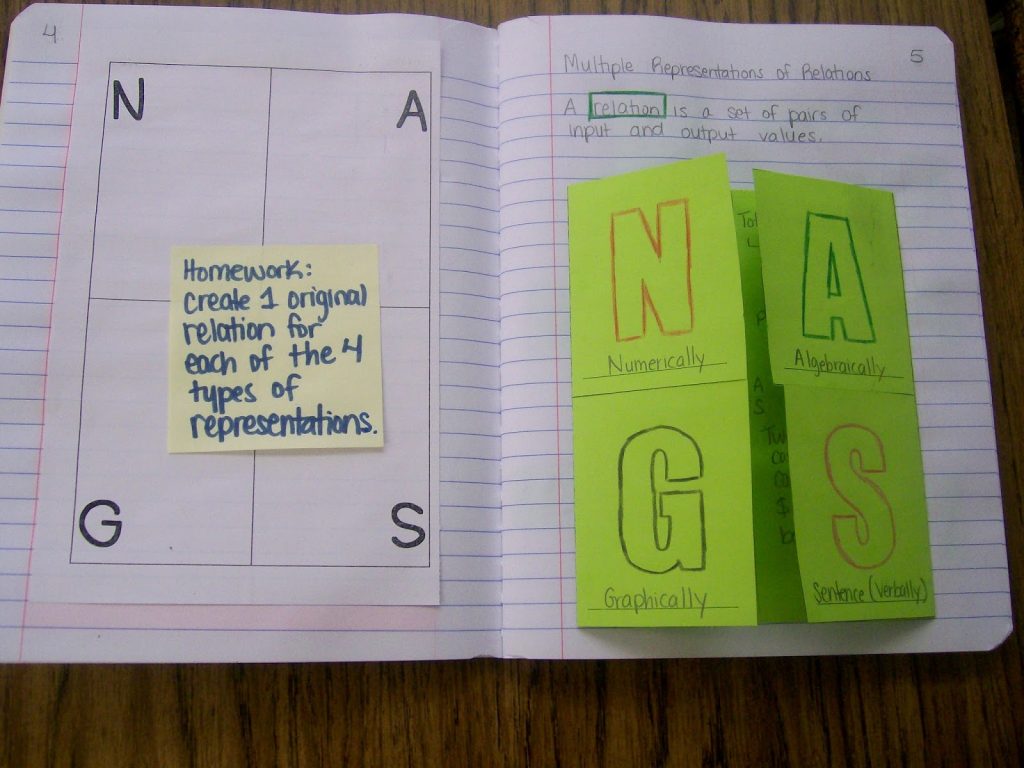 4
N
A
Homework:
create 1 original
relation for
each of the 4
types of
representations.
G
S
5
Multiple Representations of Relations
A relation is a set of pairs of
input and output values.
N
Numerically
A
Algebraically
G
Graphically
S
Sentence (verbally)